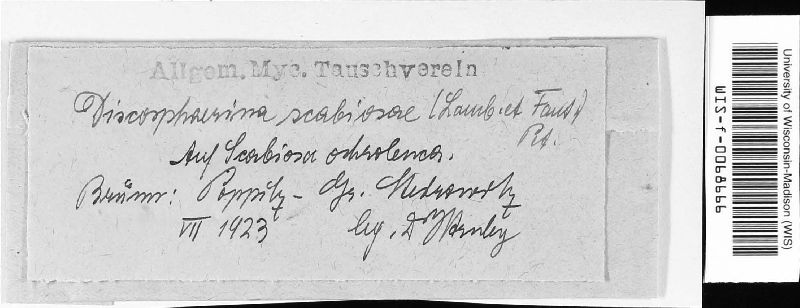 Allgem. Myc. Tauschverein
Discosphaerina scabiosae (Lamb. et Faut.)
Pet.
Auf Scabiosa ochroleuca.
Brünn: Poppitz - Gr. 
VII 1923 leg. Dr Hruby
University of Wisconsin-Madison (WIS)
WIS-f-0068666